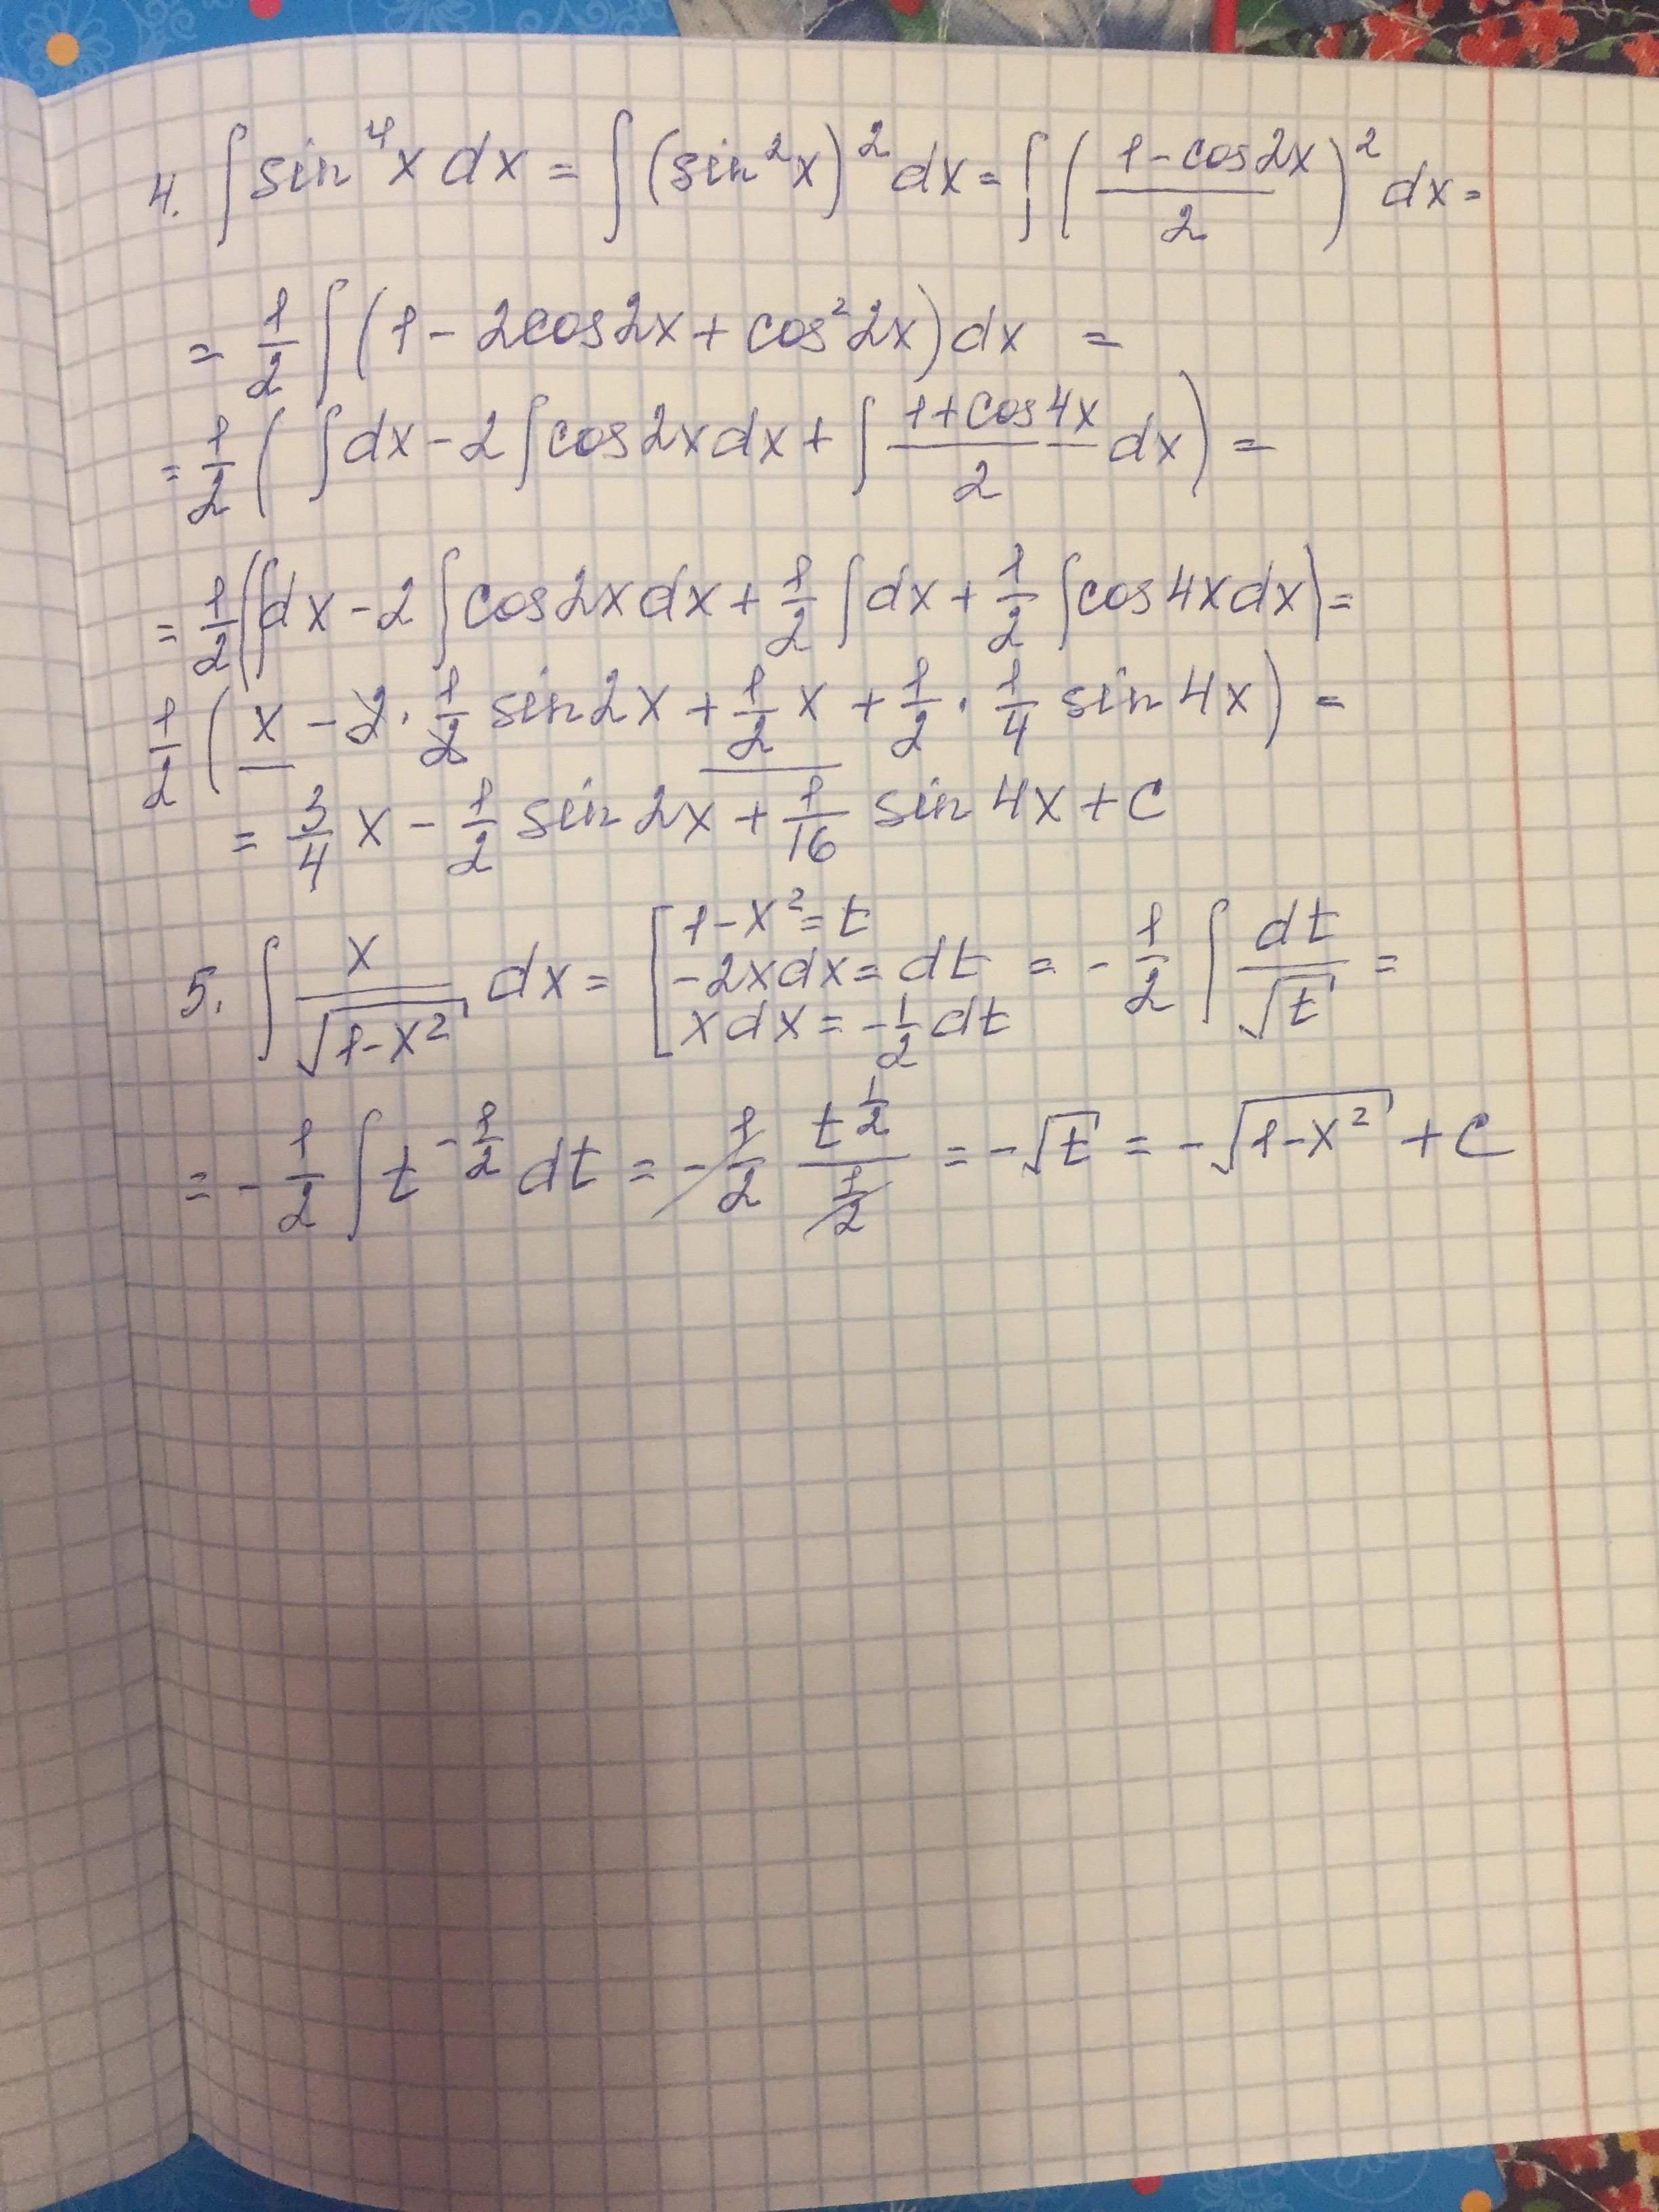 4. ∫ sin⁴x dx = ∫ (sin²x)² dx = ∫ ((1-cos2x)/2)² dx =
= 1/2 ∫ (1 - 2cos2x + cos²2x) dx =
= 1/2 ( ∫ dx - 2 ∫ cos2x dx + ∫ (1+cos4x)/2 dx ) =
= 1/2 ( ∫ dx - 2 ∫ cos2x dx + 1/2 ∫ dx + 1/2 ∫ cos4x dx ) =
1/2 ( x - 2 · 1/2 sin2x + 1/2 x + 1/2 · 1/4 sin4x ) =
= 3/4 x - 1/2 sin2x + 1/16 sin4x + C
5. ∫ x/√(1-x²) dx = [ 1-x² = t
-2xdx = dt
xdx = -1/2 dt = -1/2 ∫ dt/√t =
= -1/2 ∫ t^(-1/2) dt = -1/2 t^(1/2)/(1/2) = -√t = -√(1-x²) + C